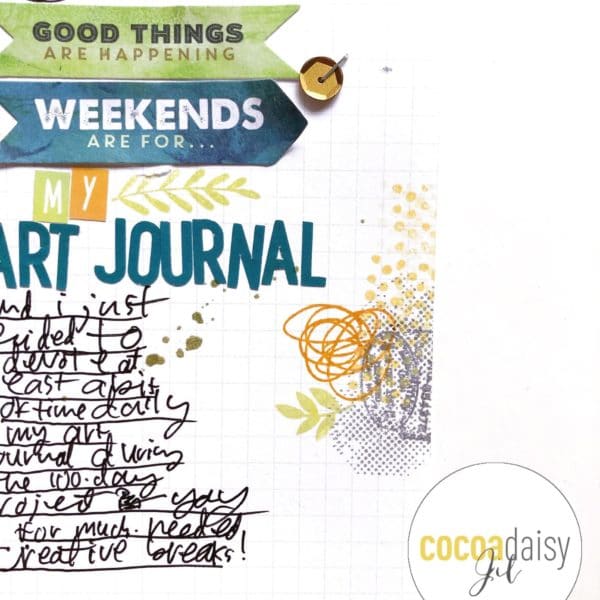 GOOD THINGS
ARE HAPPENING
WEEKENDS
ARE FOR...
MY
ART JOURNAL
and i just
ecided to
devote at
east a bit
of time daily
my art
ournal during
he 100-day
roject - yay
for much-needed
creative breaks!
cocoadaisy
Jil